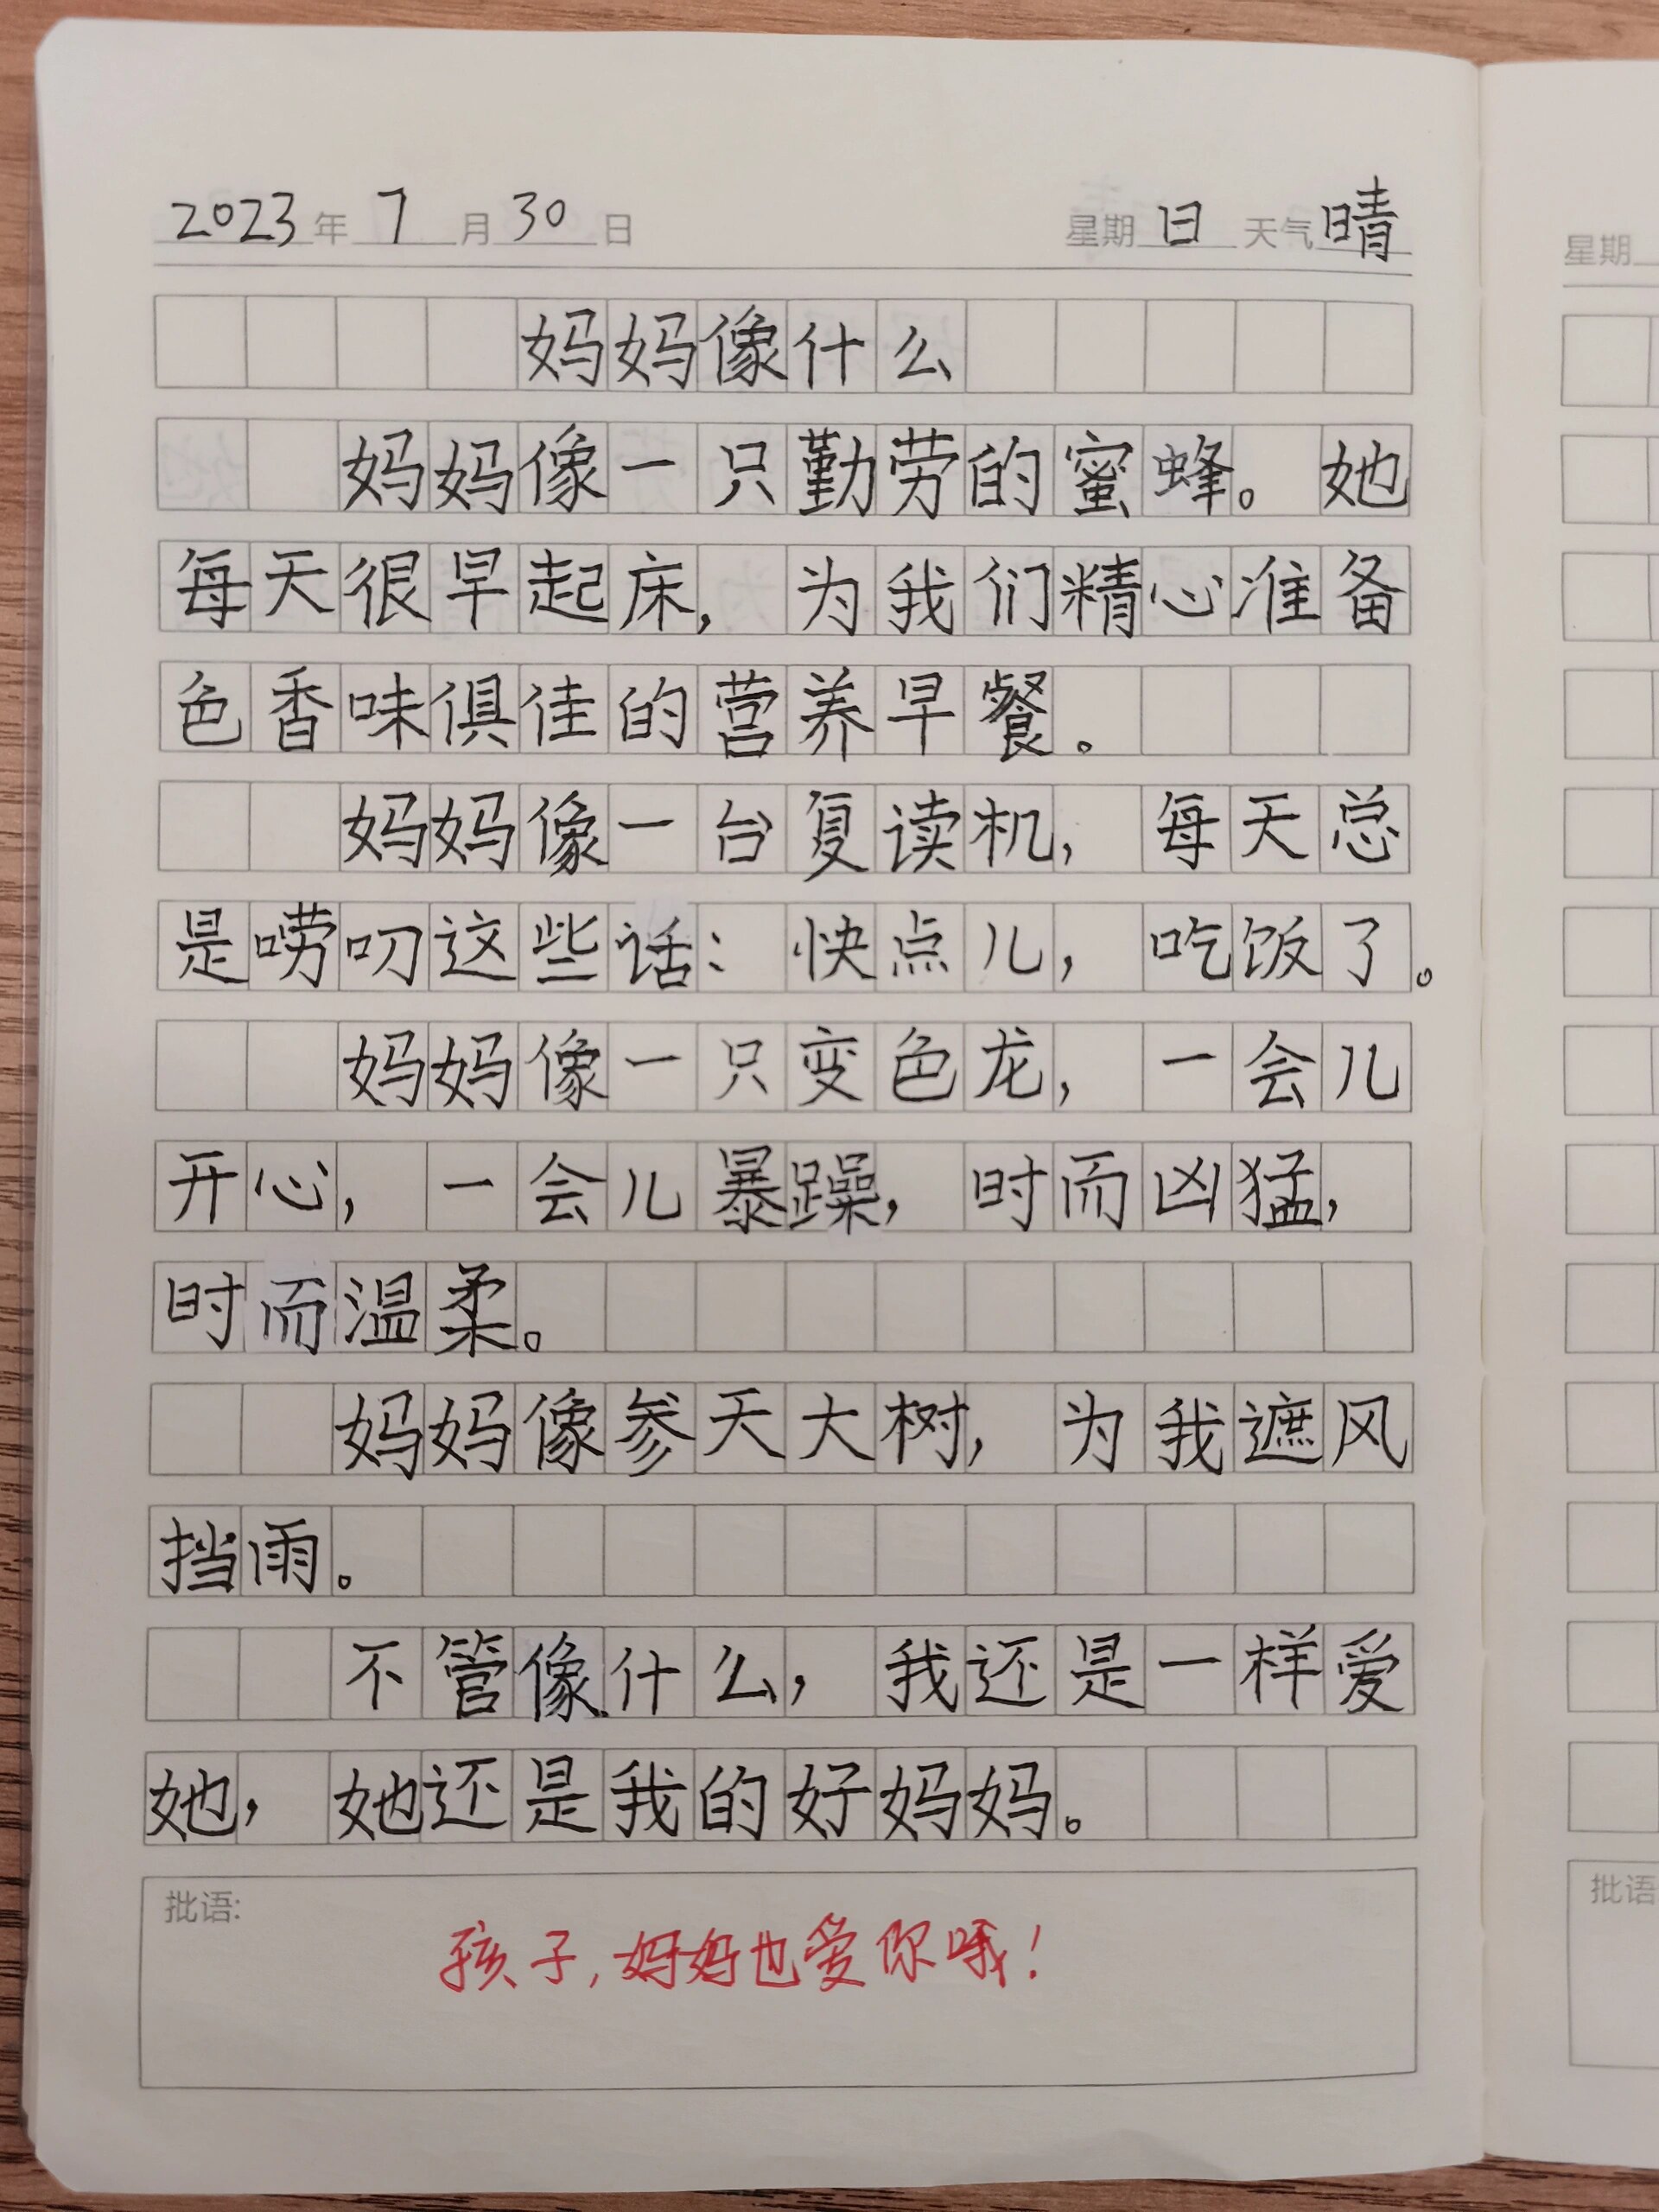 2023年7月30日 星期日 天气晴
妈妈像什么
妈妈像一只勤劳的蜜蜂。她
每天很早起床,为我们精心准备
色香味俱佳的营养早餐。
妈妈像一台复读机,每天总
是唠叨这些话:快点儿,吃饭了。
妈妈像一只变色龙,一会儿
开心,一会儿暴躁,时而凶猛,
时而温柔。
妈妈像参天大树,为我遮风
挡雨。
不管像什么,我还是一样爱
她,她还是我的好妈妈。
批语:
孩子,妈妈也爱你哦!
星期
批语